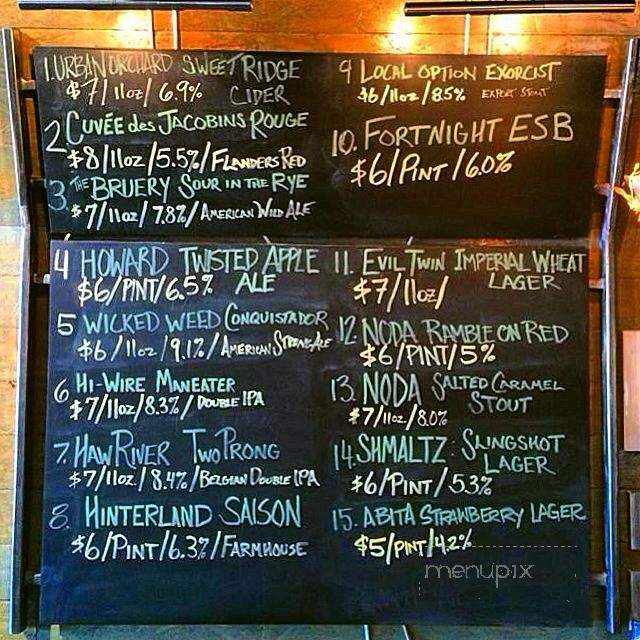 1. URBAN ORCHARD SWEET RIDGE
$7/11oz/6.9% CIDER
2. CUVÉE des JACOBINS ROUGE
$8/11oz/5.5%/FLANDERS RED
3. THE BRUERY SOUR IN THE RYE
$7/11oz/7.8%/AMERICAN WILD ALE
4 HOWARD TWISTED APPLE
$6/PINT/6.5% ALE
5 WICKED WEED CONQUISTADOR
$6/11oz/9.1%/AMERICAN STRONG ALE
6 HI-WIRE MANEATER
$7/11oz/8.3%/DOUBLE IPA
7. HAW RIVER TWO PRONG
$7/11oz./8.4%/BELGIAN DOUBLE IPA
8. HINTERLAND SAISON
$6/PINT/6.3%/FARMHOUSE
9 LOCAL OPTION EXORCIST
$6/11oz/8.5% EXPORT STOUT
10. FORTNIGHT ESB
$6/PINT/6.0%
11. EVIL TWIN IMPERIAL WHEAT
$7/11oz/ LAGER
12. NODA RAMBLE ON RED
$6/PINT/5%
13. NODA SALTED CARAMEL
STOUT
$7/11oz./8.0%
14. SHMALTZ SLINGSHOT
LAGER
$6/PINT/5.3%
15. ABITA STRAWBERRY LAGER
$5/PINT/4.2%
menupix